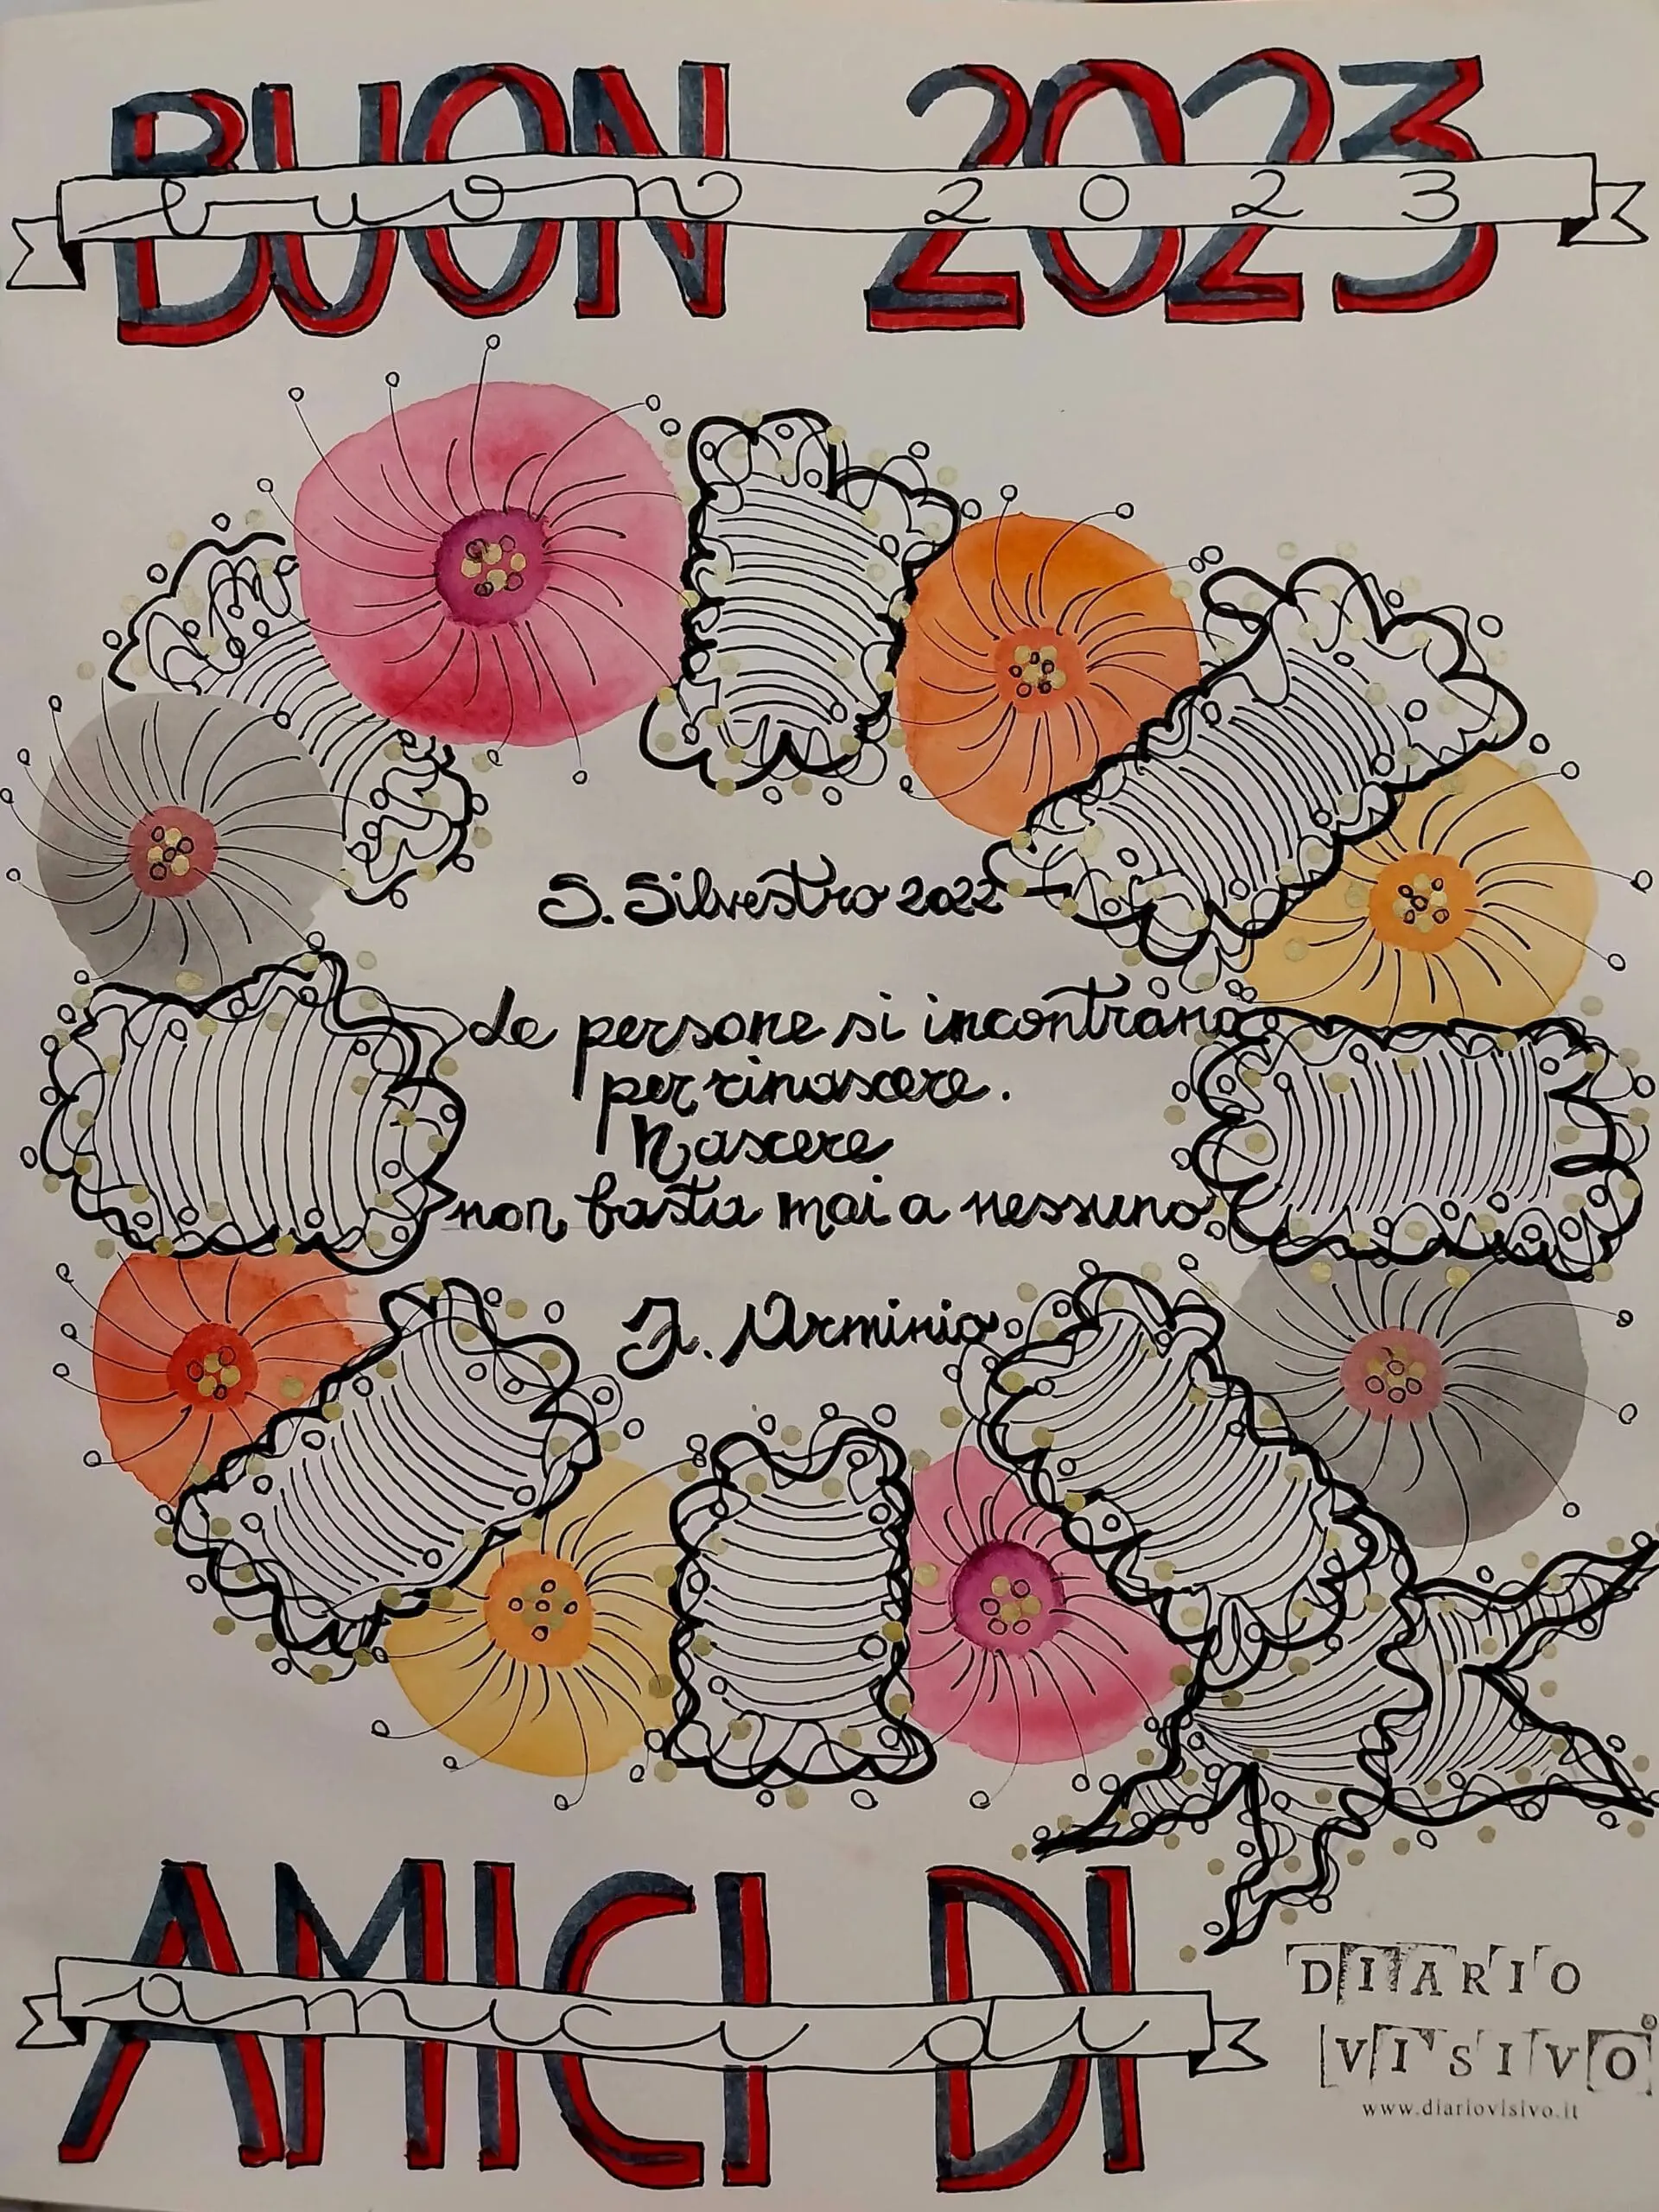 BUON 2023
buon 2023
S. Silvestro 2022
Le persone si incontrano
per rinascere.
Nascere
non basta mai a nessuno
F. Arminio
AMICI DI
amici di
DIARIO
VISIVO
www.diariovisivo.it